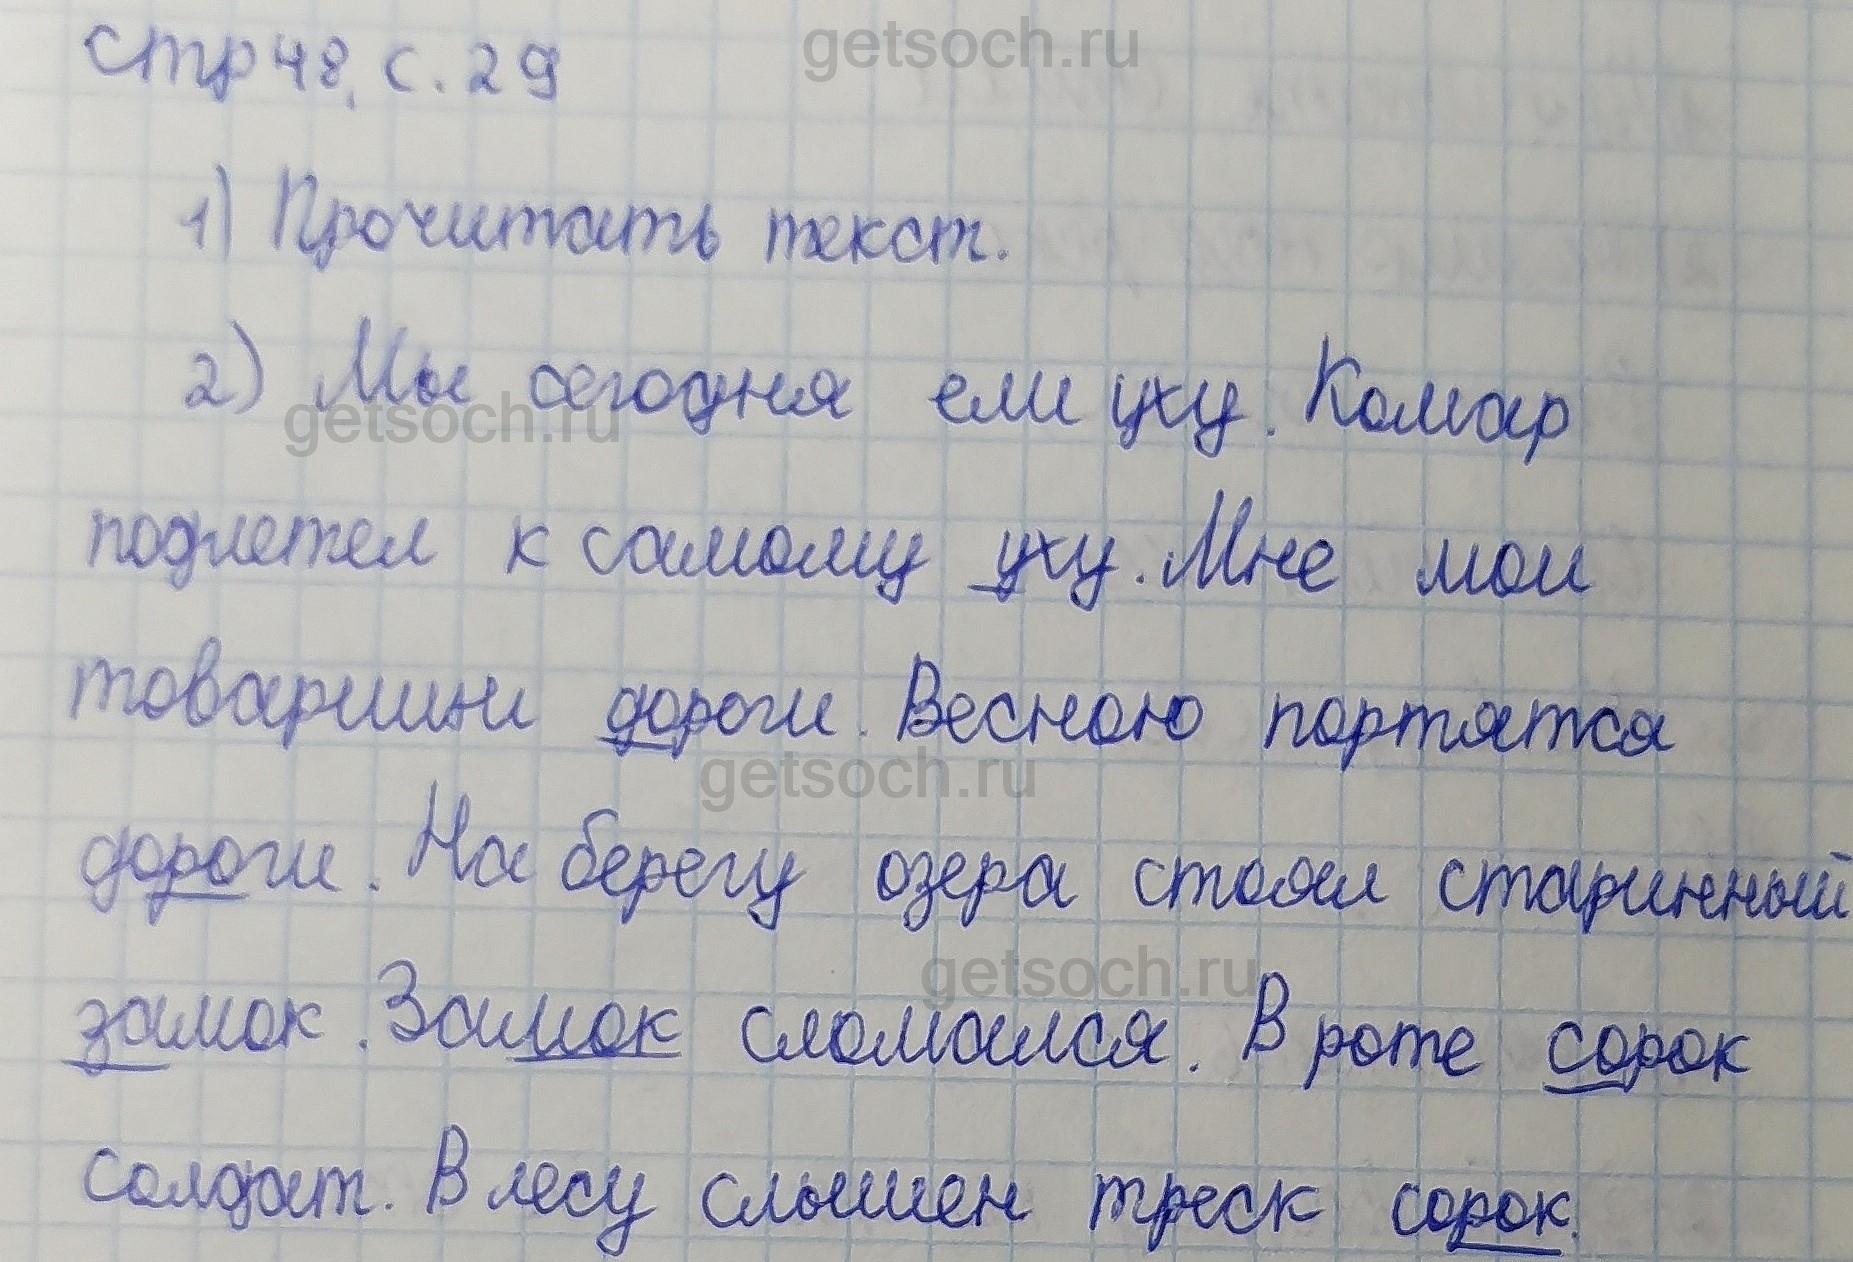 getsoch.ru
стр 48, с. 29
1) Прочитать текст.
2) Мы сегодня ели уху. Комар
getsoch.ru
подлетел к самому уху. Мне мои
товарищи дороги. Весною портятся
getsoch.ru
дороги. На берегу озера стоял старинный
getsoch.ru
замок. Замок сломался. В роте сорок
солдат. В лесу слышен треск сорок.